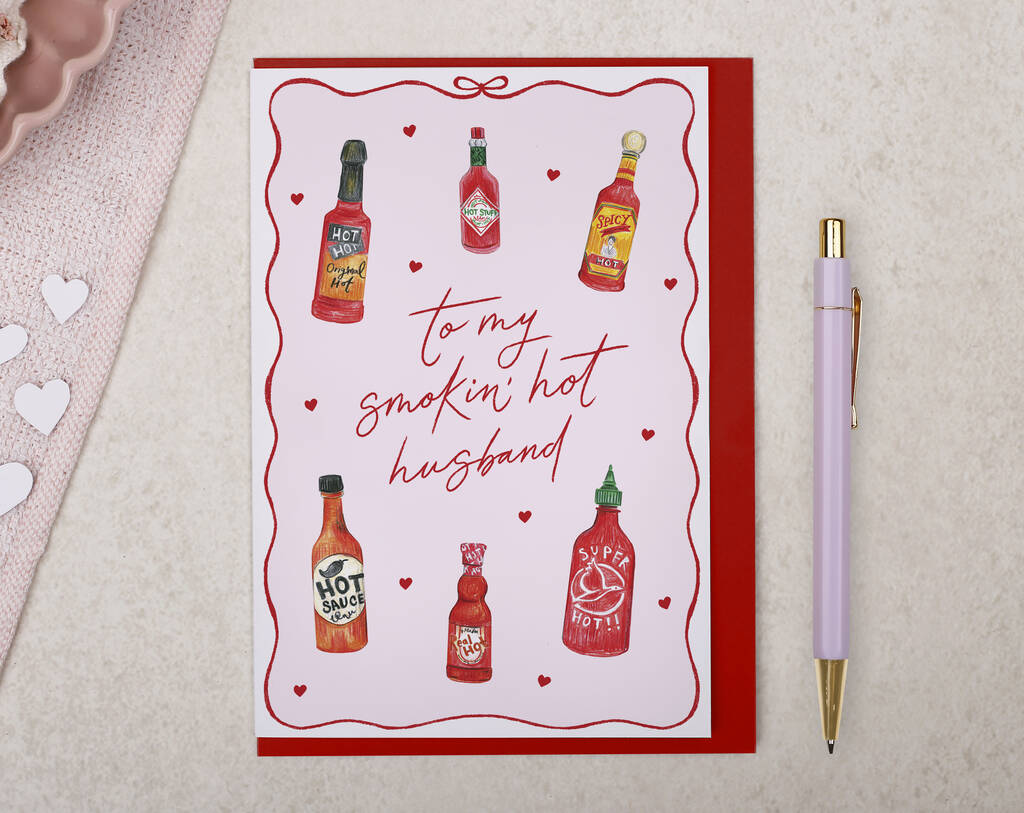 HOT
HOT
Original
Hot
HOT STUFF
SPICY
HOT
to my
smokin' hot
husband
HOT
SAUCE
HOT
HOT
SUPER
HOT!!